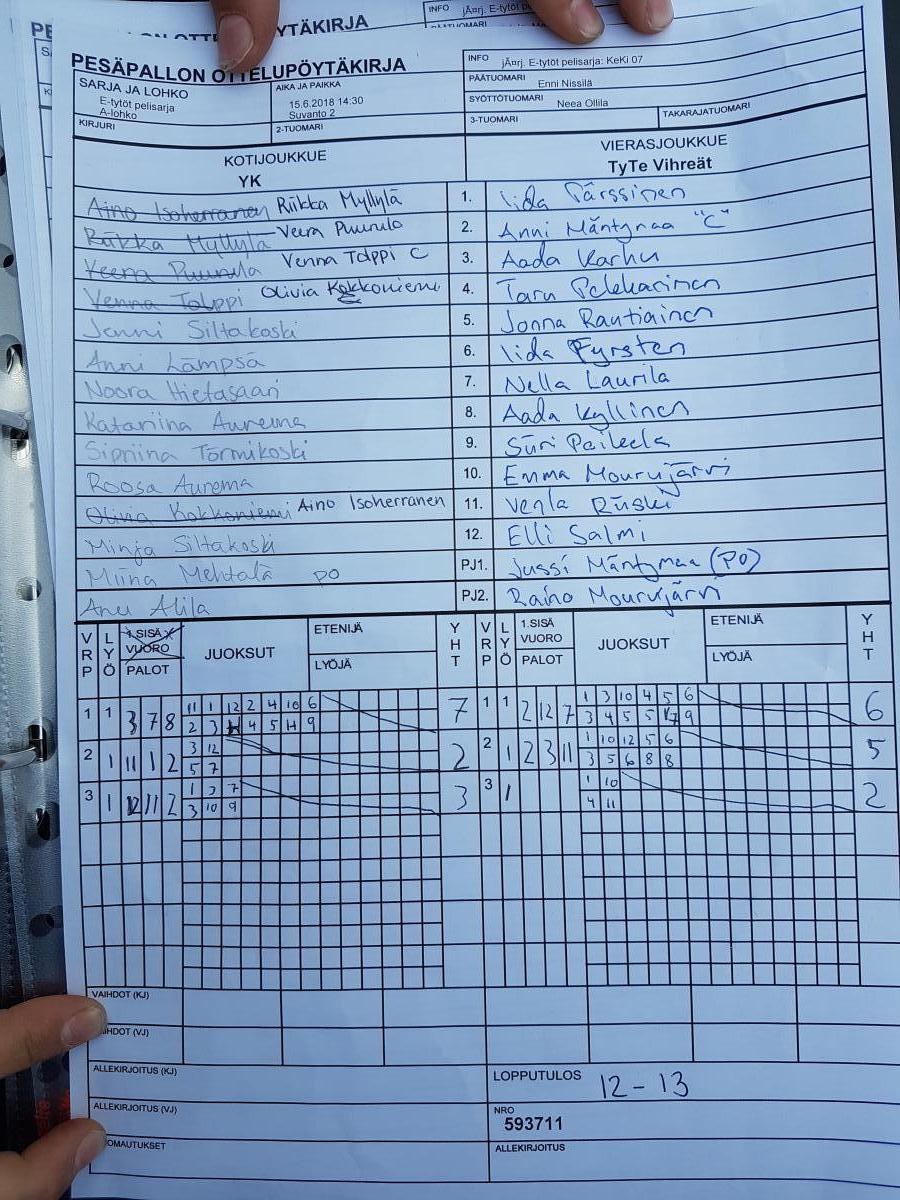 INFO jÄ¤rj. E-tytöt
YTÄKIRJA
PESÄPALLON OTTELUPÖYTÄKIRJA
INFO jÄ¤rj. E-tytöt pelisarja: KeKi 07
SARJA JA LOHKO
E-tytöt pelisarja
A-lohko
AIKA JA PAIKKA
15.6.2018 14:30
Suvanto 2
PÄÄTUOMARI Enni Nissilä
SYÖTTÖTUOMARI Neea Ollila
KIRJURI 2-TUOMARI 3-TUOMARI TAKARAJATUOMARI
KOTIJOUKKUE VIERASJOUKKUE
YK TyTe Vihreät
Aino Isoherranen Riikka Myllylä 1. Iida Pärssinen
Riikka Myllylä Veera Puurula 2. Anni Mäntymaa "C"
Veera Puurula Venna Tolppi C 3. Aada Karhu
Venna Tolppi Olivia Kokkoniemi 4. Taru Pelkharinen
Jenni Siltakoski 5. Jonna Rautiainen
Anni Lämpsä 6. Iida Fyrsten
Noora Hietasaari 7. Nella Laurila
Katariina Aurema 8. Aada Kyllinen
Sipriina Törmikoski 9. Siiri Paikela
Roosa Aurema 10. Emma Mourujärvi
Olivia Kokkoniemi Aino Isoherranen 11. Venla Ruski
Minja Siltakoski 12. Elli Salmi
Miina Mehtälä PO PJ1. Jussi Mäntymaa (PO)
Anu Alila PJ2. Raino Mourujärvi
VRP LYÖ 1.SISÄ VUORO PALOT JUOKSUT ETENIJÄ LYÖJÄ YHT VRP LYÖ 1.SISÄ VUORO PALOT JUOKSUT ETENIJÄ LYÖJÄ YHT
1 1 3 7 8 11 1 12 2 4 10 6 7 1 1 2 12 7 1 3 10 4 5 6 6
2 3 4 5 11 9 3 4 5 5 7 9
2 1 11 1 2 3 12 2 2 1 2 3 11 1 10 12 5 6 5
5 7 3 5 6 8 8
3 1 12 11 2 1 3 7 3 3 1 1 10 2
3 10 9 4 11
VAIHDOT (KJ)
HDOT (VJ)
ALLEKIRJOITUS (KJ) LOPPUTULOS 12 - 13
ALLEKIRJOITUS (VJ) NRO
593711
OMAUTUKSET ALLEKIRJOITUS